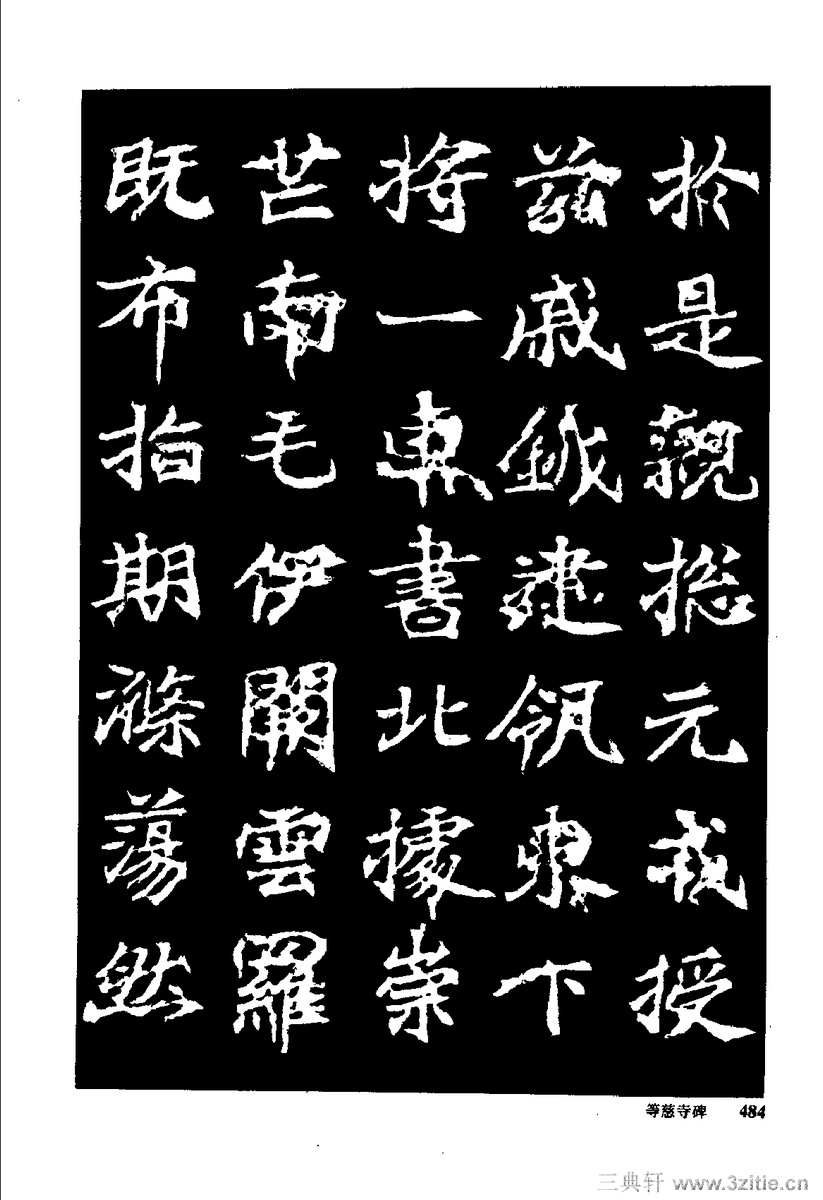 於是親揔元戎授
茲戚鉞建瓴東下
將一車書北據崇
芒南屯伊闕雲羅
既布指期滌蕩然
等慈寺碑 484
三典轩 www.3zitie.cn